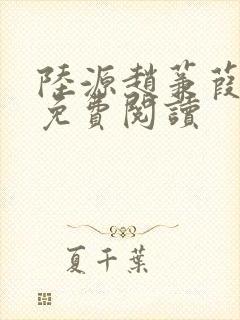 陸源趙蒹葭
免費閱讀
夏千葉